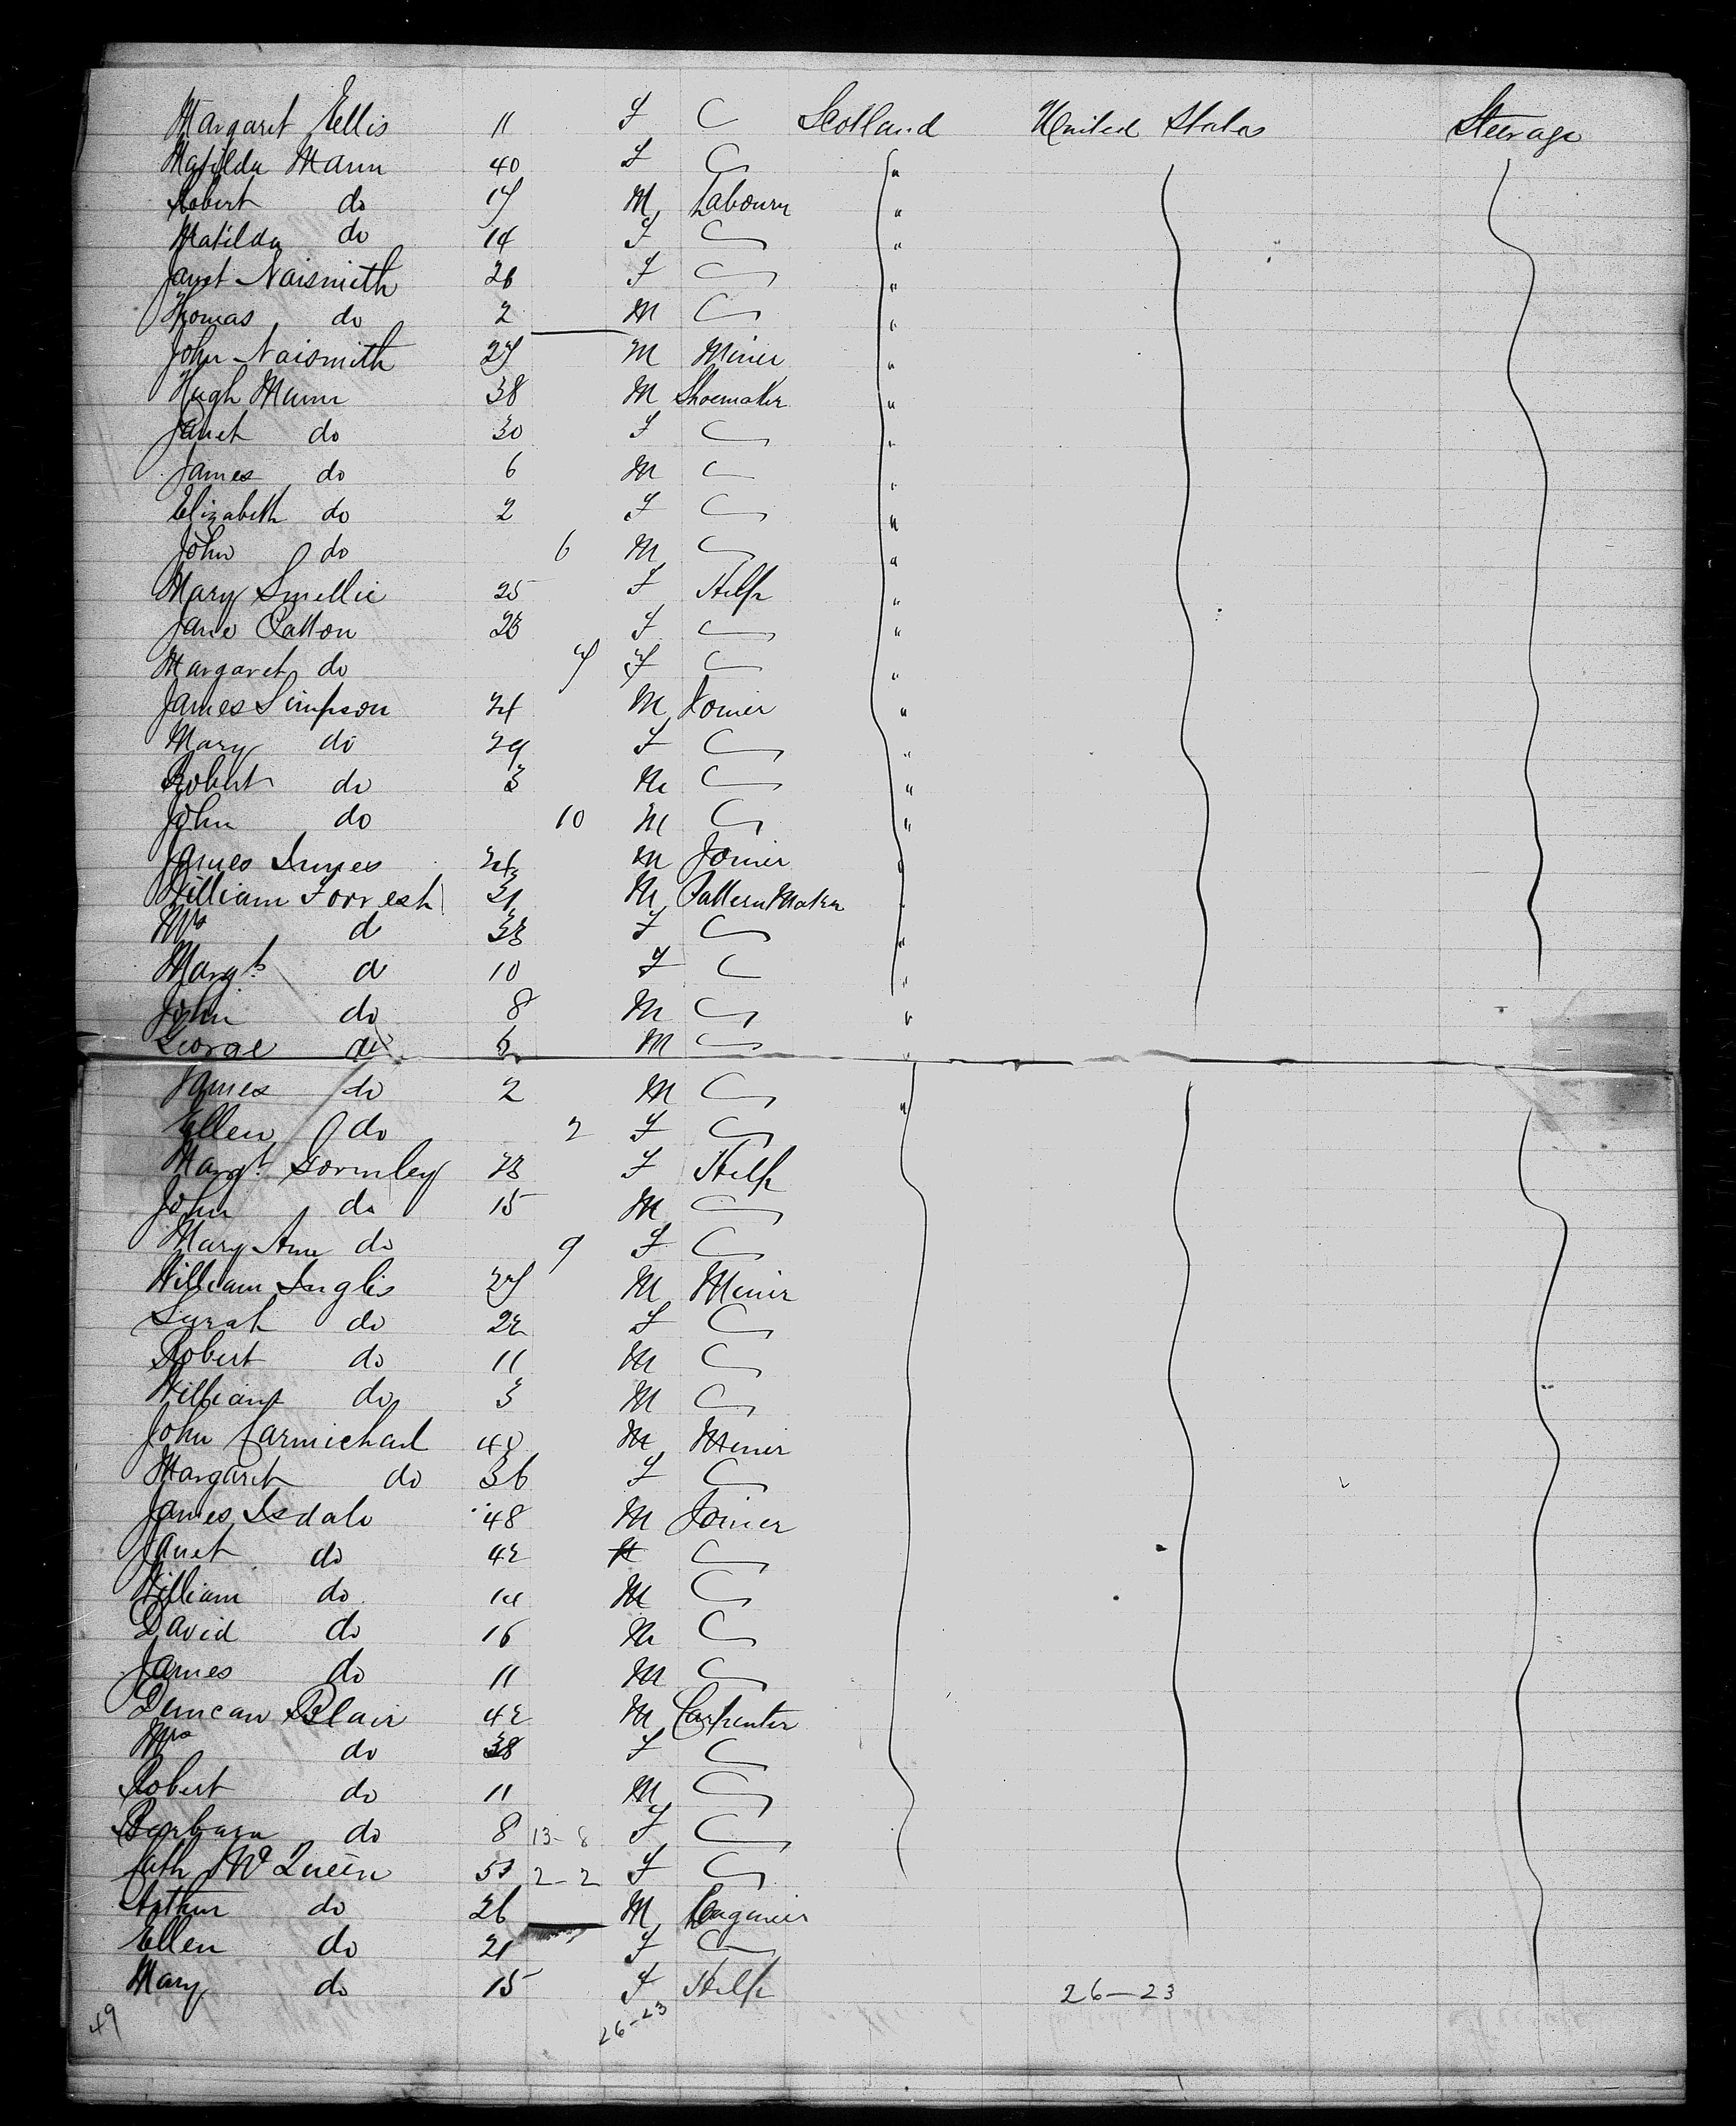 Margaret Ellis 11 F Scotland United States Steerage
Matilda Mann 40 F "
Robert do 17 M Labourer "
Matilda do 14 F "
Janet Naismith 26 F "
Thomas do 2 M "
John Naismith 27 M Miner "
Hugh Mann 38 M Shoemaker "
Janet do 30 F "
James do 6 M "
Elizabeth do 2 F "
John do 6 M "
Mary Smellie 25 F Help "
Jane Patton 23 F "
Margaret do 7 F "
James Simpson 24 M Joiner "
Mary do 29 F "
Robert do 3 M "
John do 10 M "
James Innes M Joiner "
William Forrest M Pattern Maker "
Mrs d 33 F "
Margt d 10 F "
John do 8 M "
George do 6 M "
James do 2 M "
Ellen do 2 F
Margt Gormley F Help
John do 15 M
Mary Ann do 9 F
William Inglis 27 M Miner
Sarah do 22 F
Robert do 11 M
William do 3 M
John Carmichael 40 M Miner
Margaret do 36 F
James Isdale 48 M Joiner
Janet do 42
William do 14 M
David do 16 M
James do 11 M
Duncan Blair 42 M Carpenter
Mrs do 38 F
Robert do 11 M
Barbara do 8 13-8 F
Cath McQueen 2-2 F
Arthur do 26 M Engineer
Ellen do 21 F
Mary do 15 F Help 26-23
49 26-23